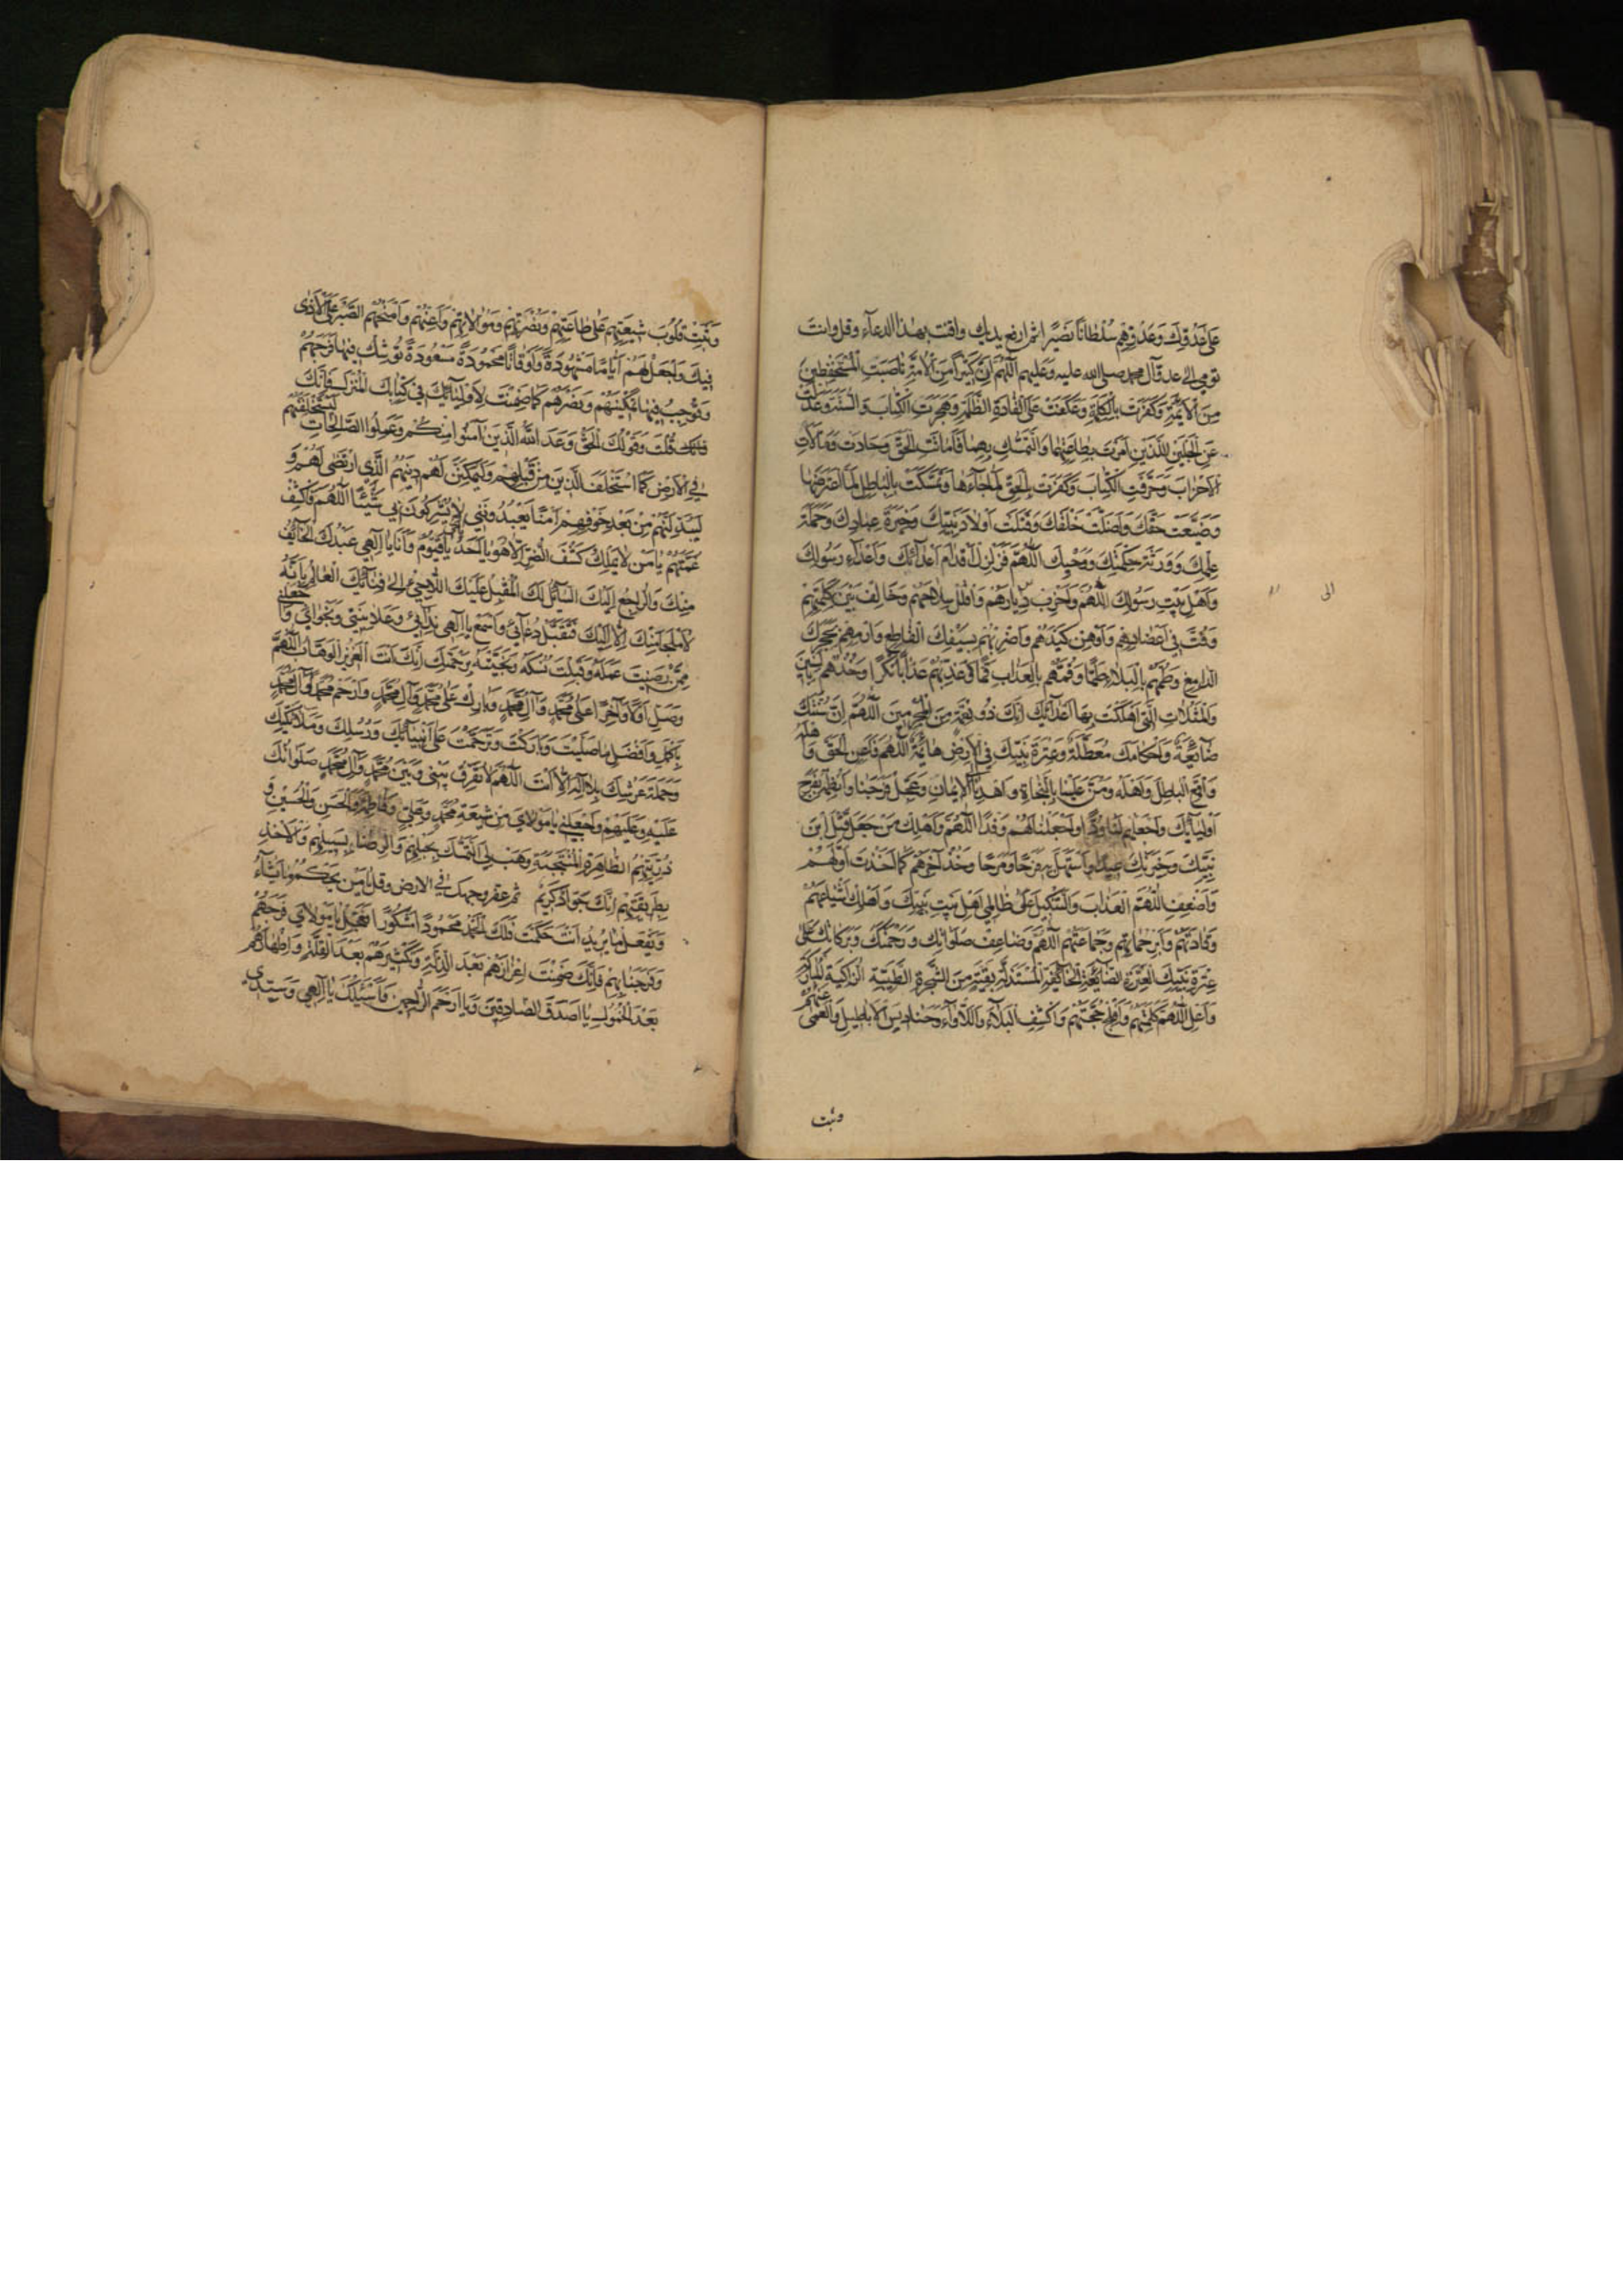 عَلىٰ عَدُوِّكَ وَعَدُوِّهِمْ سُلْطَانًا نَصِيرًا ثم ارفع يديك واقنت بهذا الدعاء وقل وانت
تومي الى اعداء آل محمد صلى الله عليه وعليهم اَللّٰهُمَّ اِنَّ كَثِيرًا مِنَ الْاُمَّةِ نَاصَبَتِ الْمُسْتَحْفَظِينَ
مِنَ الْاَئِمَّةِ وَكَفَرَتْ بِالْكَلِمَةِ وَعَكَفَتْ عَلَى الْقَادَةِ الظَّلَمَةِ وَهَجَرَتِ الْكِتَابَ وَالسُّنَّةَ وَعَدَلَتْ
عَنِ الْحَبْلَيْنِ اللَّذَيْنِ اَمَرْتَ بِطَاعَتِهِمَا وَالتَّمَسُّكِ بِهِمَا فَاَمَاتَتِ الْحَقَّ وَحَادَتْ وَمَالَاَتِ
الْاَحْزَابَ وَحَرَّفَتِ الْكِتَابَ وَكَفَرَتْ بِالْحَقِّ لَمَّا جَاءَهَا وَتَمَسَّكَتْ بِالْبَاطِلِ لَمَّا اعْتَرَضَهَا
وَضَيَّعَتْ حَقَّكَ وَاَضَلَّتْ خَلْقَكَ وَقَتَلَتْ اَوْلَادَ نَبِيِّكَ وَخِيَرَةَ عِبَادِكَ وَحَمَلَةَ
عِلْمِكَ وَوَرَثَةَ حِكْمَتِكَ وَوَحْيِكَ اَللّٰهُمَّ فَزَلْزِلْ اَقْدَامَ اَعْدَائِكَ وَاَعْدَاءِ رَسُولِكَ
وَاَهْلِ بَيْتِ رَسُولِكَ اَللّٰهُمَّ وَاَخْرِبْ دِيَارَهُمْ وَافْلُلْ سِلَاحَهُمْ وَخَالِفْ بَيْنَ كَلِمَتِهِمْ
وَفُتَّ فِي اَعْضَادِهِمْ وَاَوْهِنْ كَيْدَهُمْ وَاضْرِبْهُمْ بِسَيْفِكَ الْقَاطِعِ وَارْمِهِمْ بِحَجَرِكَ
الدَّامِغِ وَطُمَّهُمْ بِالْبَلَاءِ طَمًّا وَقُمَّهُمْ بِالْعَذَابِ قَمًّا وَعَذِّبْهُمْ عَذَابًا نُكْرًا وَخُذْهُمْ بِالسِّنِينَ
وَالْمَثُلَاتِ الَّتِي اَهْلَكْتَ بِهَا اَعْدَائَكَ اِنَّكَ ذُو نِقْمَةٍ مِنَ الْمُجْرِمِينَ اَللّٰهُمَّ اِنَّ سُنَّتَكَ
ضَائِعَةٌ وَاَحْكَامَكَ مُعَطَّلَةٌ وَعِتْرَةَ نَبِيِّكَ فِي الْاَرْضِ هَائِمَةٌ اَللّٰهُمَّ فَاَعِنِ الْحَقَّ وَاَهْلَهُ
وَاقْمَعِ الْبَاطِلَ وَاَهْلَهُ وَمُنَّ عَلَيْنَا بِالنَّجَاةِ وَاهْدِنَا اِلَى الْاِيمَانِ وَعَجِّلْ فَرَجَنَا وَانْظِمْهُ بِفَرَجِ
اَوْلِيَائِكَ وَاجْعَلْهُمْ لَنَا وُدًّا وَاجْعَلْنَا لَهُمْ وَفْدًا اَللّٰهُمَّ وَاَهْلِكْ مَنْ جَعَلَ قَتْلَ ابْنِ
نَبِيِّكَ وَخِيَرَتِكَ عِيدًا وَاسْتَهَلَّ بِهِ فَرَحًا وَمَرَحًا وَخُذْ آخِرَهُمْ كَمَا اَخَذْتَ اَوَّلَهُمْ
وَاَضْعِفِ اللّٰهُمَّ الْعَذَابَ وَالتَّنْكِيلَ عَلىٰ ظَالِمِي اَهْلِ بَيْتِ نَبِيِّكَ وَاَهْلِكْ اَشْيَاعَهُمْ
وَقَادَتَهُمْ وَاَبِرْ حُمَاتَهُمْ وَجَمَاعَتَهُمْ اَللّٰهُمَّ وَضَاعِفْ صَلَوَاتِكَ وَرَحْمَتَكَ وَبَرَكَاتِكَ عَلىٰ
عِتْرَةِ نَبِيِّكَ الْعِتْرَةِ الضَّائِعَةِ الْخَائِفَةِ الْمُسْتَذَلَّةِ بَقِيَّةٍ مِنَ الشَّجَرَةِ الطَّيِّبَةِ الزَّاكِيَةِ الْمُبَارَكَةِ
وَاَعْلِ اللّٰهُمَّ كَلِمَتَهُمْ وَاَفْلِجْ حُجَّتَهُمْ وَاكْشِفِ الْبَلَاءَ وَاللَّأْوَاءَ وَحَنَادِسَ الْاَبَاطِيلِ وَالْعَمىٰ عَنْهُمْ
وثبت
الى
وَثَبِّتْ قُلُوبَ شِيعَتِهِمْ عَلىٰ طَاعَتِهِمْ وَنُصْرَتِهِمْ وَمُوَالَاتِهِمْ وَاَعِنْهُمْ وَامْنَحْهُمُ الصَّبْرَ عَلَى الْاَذىٰ
فِيكَ وَاجْعَلْ لَهُمْ اَيَّامًا مَشْهُودَةً وَاَوْقَاتًا مَحْمُودَةً مَسْعُودَةً تُوشِكُ فِيهَا فَرَجَهُمْ
وَتُوجِبُ فِيهَا تَمْكِينَهُمْ وَنَصْرَهُمْ كَمَا ضَمِنْتَ لِاَوْلِيَائِكَ فِي كِتَابِكَ الْمُنْزَلِ فَاِنَّكَ
قُلْتَ وَقَوْلُكَ الْحَقُّ وَعَدَ اللّٰهُ الَّذِينَ آمَنُوا مِنْكُمْ وَعَمِلُوا الصَّالِحَاتِ لَيَسْتَخْلِفَنَّهُمْ
فِي الْاَرْضِ كَمَا اسْتَخْلَفَ الَّذِينَ مِنْ قَبْلِهِمْ وَلَيُمَكِّنَنَّ لَهُمْ دِينَهُمُ الَّذِي ارْتَضىٰ لَهُمْ وَ
لَيُبَدِّلَنَّهُمْ مِنْ بَعْدِ خَوْفِهِمْ اَمْنًا يَعْبُدُونَنِي لَا يُشْرِكُونَ بِي شَيْئًا اَللّٰهُمَّ فَاكْشِفْ
غُمَّتَهُمْ يَا مَنْ لَا يَمْلِكُ كَشْفَ الضُّرِّ اِلَّا هُوَ يَا اَحَدُ يَا حَيُّ يَا قَيُّومُ وَاَنَا يَا اِلٰهِي عَبْدُكَ الْخَائِفُ
مِنْكَ وَالرَّاجِعُ اِلَيْكَ السَّائِلُ لَكَ الْمُقْبِلُ عَلَيْكَ اللَّاجِئُ اِلىٰ فِنَائِكَ الْعَالِمُ بِاَنَّهُ
لَا مَلْجَأَ مِنْكَ اِلَّا اِلَيْكَ فَتَقَبَّلْ دُعَائِي وَاسْمَعْ يَا اِلٰهِي نِدَائِي وَعَلَانِيَتِي وَنَجْوَايَ وَاجْعَلْنِي
مِمَّنْ رَضِيتَ عَمَلَهُ وَقَبِلْتَ نُسُكَهُ وَنَجَّيْتَهُ بِرَحْمَتِكَ اِنَّكَ اَنْتَ الْعَزِيزُ الْوَهَّابُ اَللّٰهُمَّ
وَصَلِّ اَوَّلًا وَآخِرًا عَلىٰ مُحَمَّدٍ وَآلِ مُحَمَّدٍ وَبَارِكْ عَلىٰ مُحَمَّدٍ وَآلِ مُحَمَّدٍ وَارْحَمْ مُحَمَّدًا وَآلَ مُحَمَّدٍ
بِاَكْمَلِ وَاَفْضَلِ مَا صَلَّيْتَ وَبَارَكْتَ وَتَرَحَّمْتَ عَلىٰ اَنْبِيَائِكَ وَرُسُلِكَ وَمَلَائِكَتِكَ
وَحَمَلَةِ عَرْشِكَ بِلَا اِلٰهَ اِلَّا اَنْتَ اَللّٰهُمَّ لَا تُفَرِّقْ بَيْنِي وَبَيْنَ مُحَمَّدٍ وَآلِ مُحَمَّدٍ صَلَوَاتُكَ
عَلَيْهِ وَعَلَيْهِمْ وَاجْعَلْنِي يَا مَوْلَايَ مِنْ شِيعَةِ مُحَمَّدٍ وَعَلِيٍّ وَفَاطِمَةَ وَالْحَسَنِ وَالْحُسَيْنِ وَ
ذُرِّيَّتِهِمُ الطَّاهِرَةِ الْمُنْتَجَبَةِ وَهَبْ لِيَ التَّمَسُّكَ بِحَبْلِهِمْ وَالرِّضَا بِسَبِيلِهِمْ وَالْاَخْذَ
بِطَرِيقَتِهِمْ اِنَّكَ جَوَادٌ كَرِيمٌ ثم عفر وجهك في الارض وقل يَا مَنْ يَحْكُمُ مَا يَشَاءُ
وَيَفْعَلُ مَا يُرِيدُ اَنْتَ حَكَمْتَ فَلَكَ الْحَمْدُ مَحْمُودًا مَشْكُورًا فَعَجِّلْ يَا مَوْلَايَ فَرَجَهُمْ
وَفَرَجَنَا بِهِمْ فَاِنَّكَ ضَمِنْتَ اِعْزَازَهُمْ بَعْدَ الذِّلَّةِ وَتَكْثِيرَهُمْ بَعْدَ الْقِلَّةِ وَاِظْهَارَهُمْ
بَعْدَ الْخُمُولِ يَا اَصْدَقَ الصَّادِقِينَ وَيَا اَرْحَمَ الرَّاحِمِينَ فَاَسْئَلُكَ يَا اِلٰهِي وَسَيِّدِي